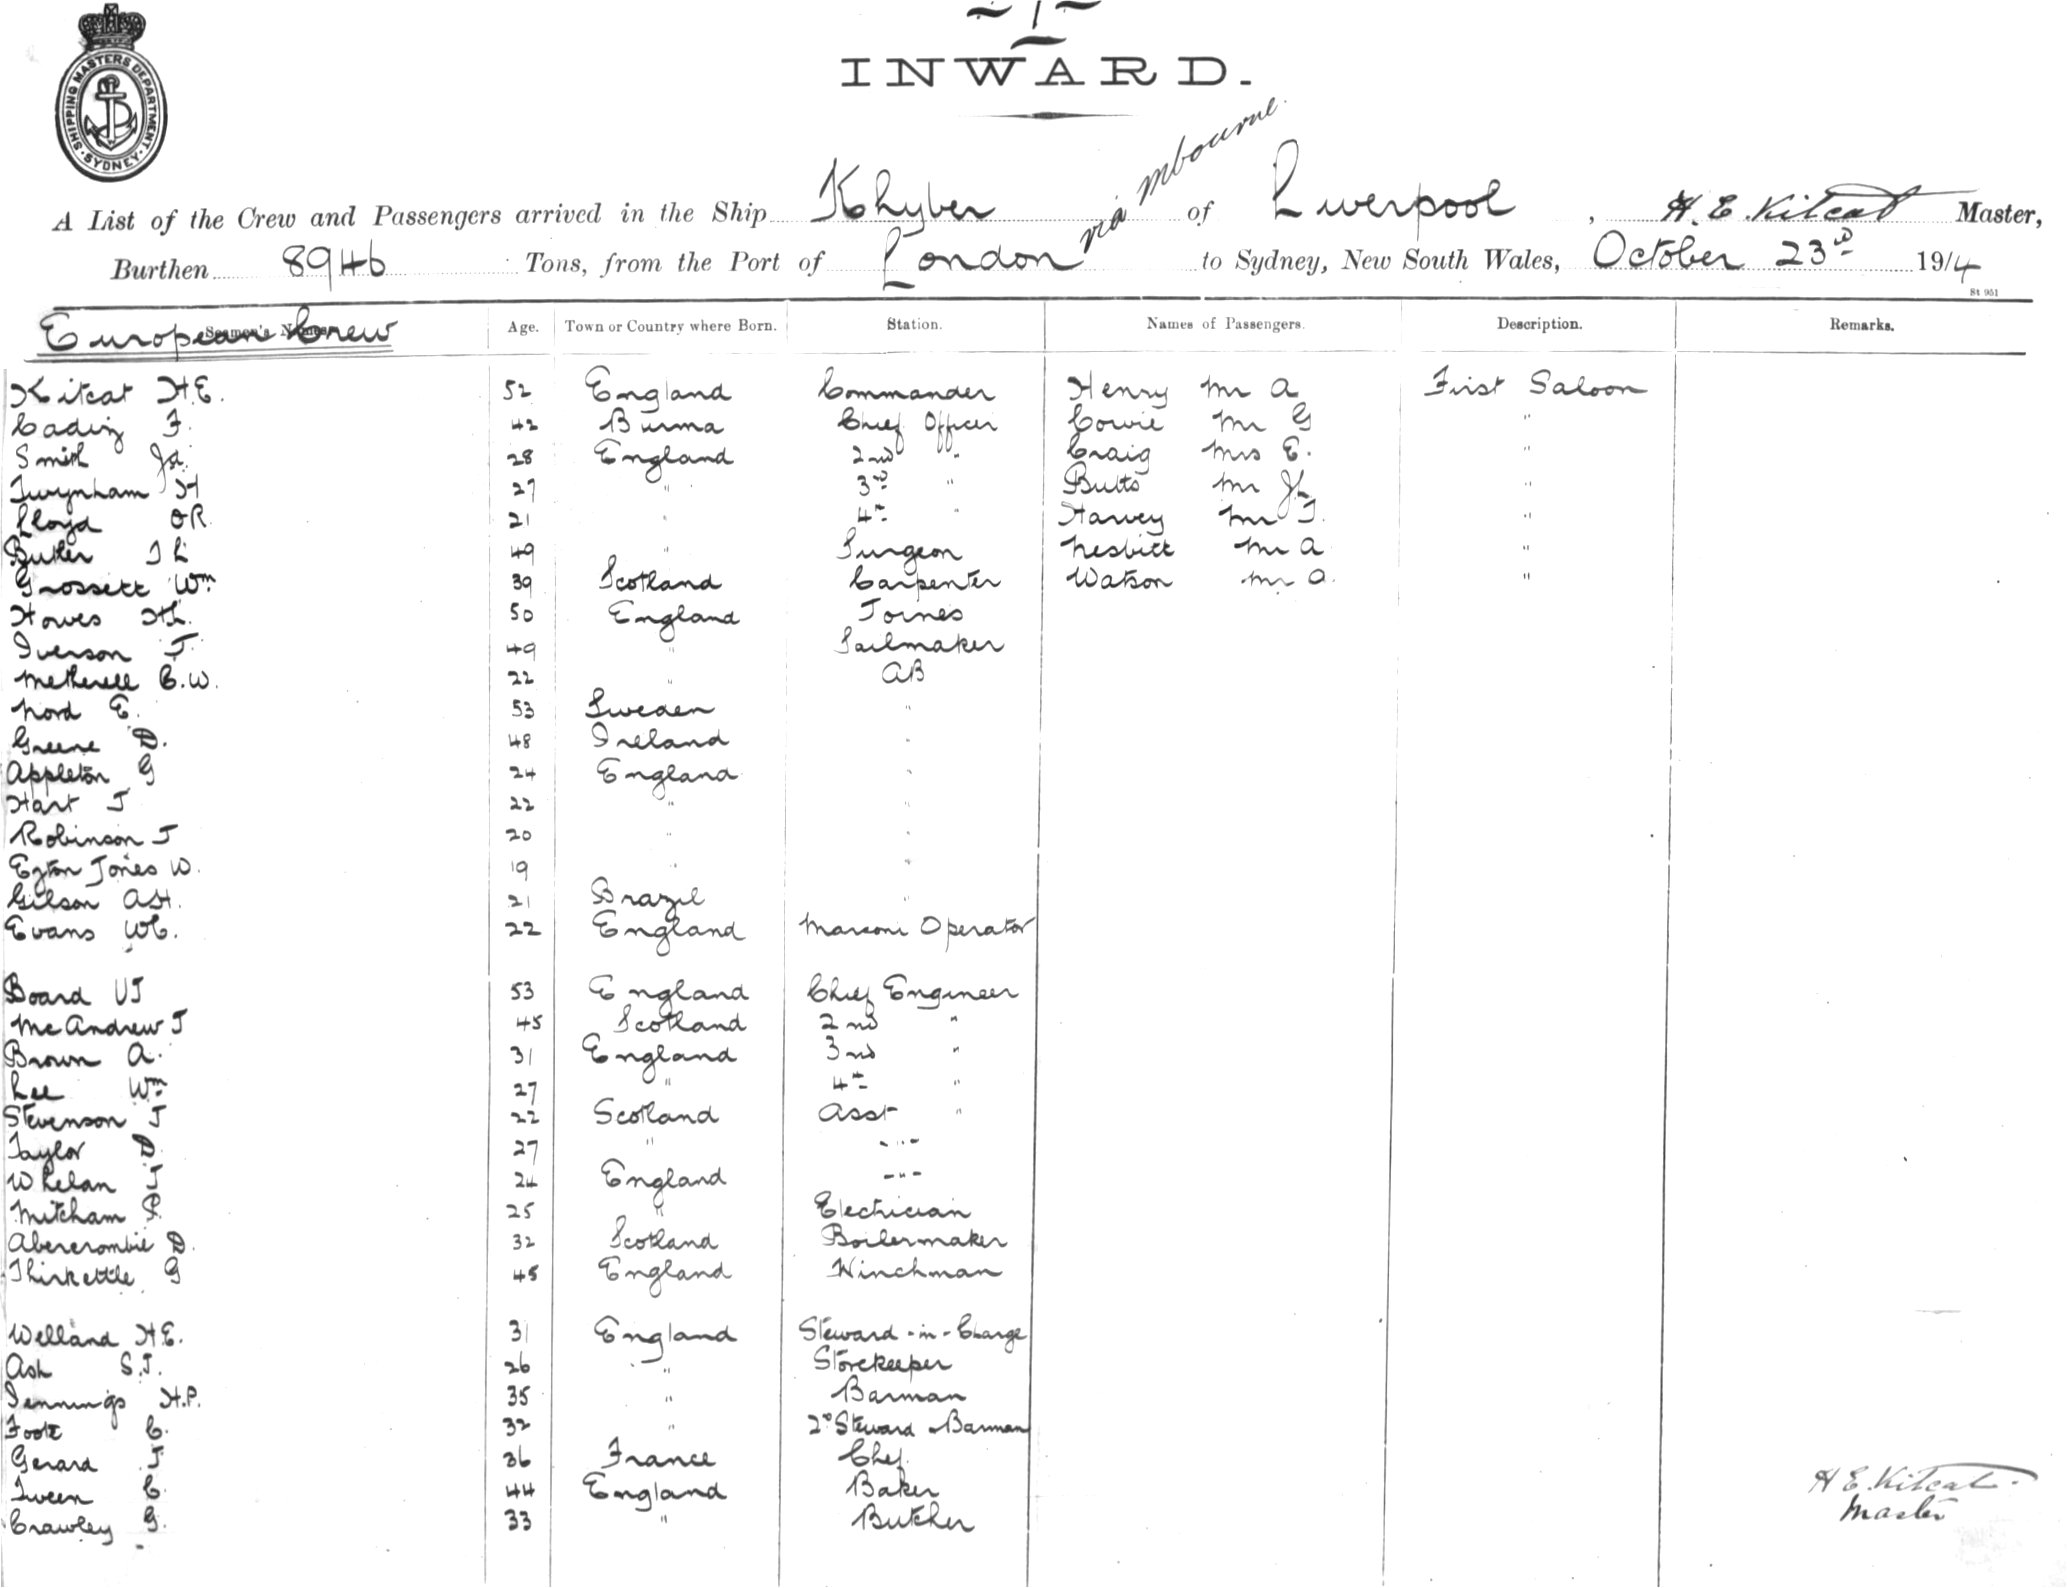 ~ 1 ~
SHIPPING MASTERS DEPARTMENT. SYDNEY.
INWARD.
A List of the Crew and Passengers arrived in the Ship Khyber of Liverpool, H. E. Kitcat Master,
via Mbourne
Burthen 8946 Tons, from the Port of London to Sydney, New South Wales, October 23rd 1914
St 951
European Crew Seamen's Names. Age. Town or Country where Born. Station. Names of Passengers. Description. Remarks.
Kitcat H.E. 52 England Commander Henry Mr A First Saloon
Cading F. 42 Burma Chief Officer Cowie Mr G "
Smith 28 England 2nd " Craig Mrs E. "
Twynham H 27 " 3rd " Butts Mr "
Lloyd OR 21 " 4th " Harvey Mr T. "
Butler T L 49 " Surgeon Nesbitt Mr A "
Grossett Wm 39 Scotland Carpenter Watson Mr A. "
Howes 50 England Joiner
Iverson J. 49 " Sailmaker
Metherell C.W. 22 " AB
Nord E. 53 Sweden "
Greene D. 48 Ireland "
Appleton G 24 England "
Hart J 22 " "
Robinson J 20 " "
Jones W. 19 " "
Gilson AH. 21 Brazil "
Evans WC. 22 England Marconi Operator
Board VJ 53 England Chief Engineer
McAndrew J 45 Scotland 2nd "
Brown A. 31 England 3rd "
Lee Wm 27 " 4th "
Stevenson J 22 Scotland Asst "
Taylor D. 27 " -"-
Whelan J 24 England -"-
Mitcham P. 25 " Electrician
Abercrombie D. 32 Scotland Boilermaker
Thirkettle G 45 England Winchman
Welland H.E. 31 England Steward-in-Charge
Ash S.J. 26 " Storekeeper
Jennings H.P. 35 " Barman
Foote C. 32 " 2nd Steward & Barman
Gerard J. 36 France Chef.
Tween C. 44 England Baker
Crawley G. 33 " Butcher
H E. Kitcat.
Master